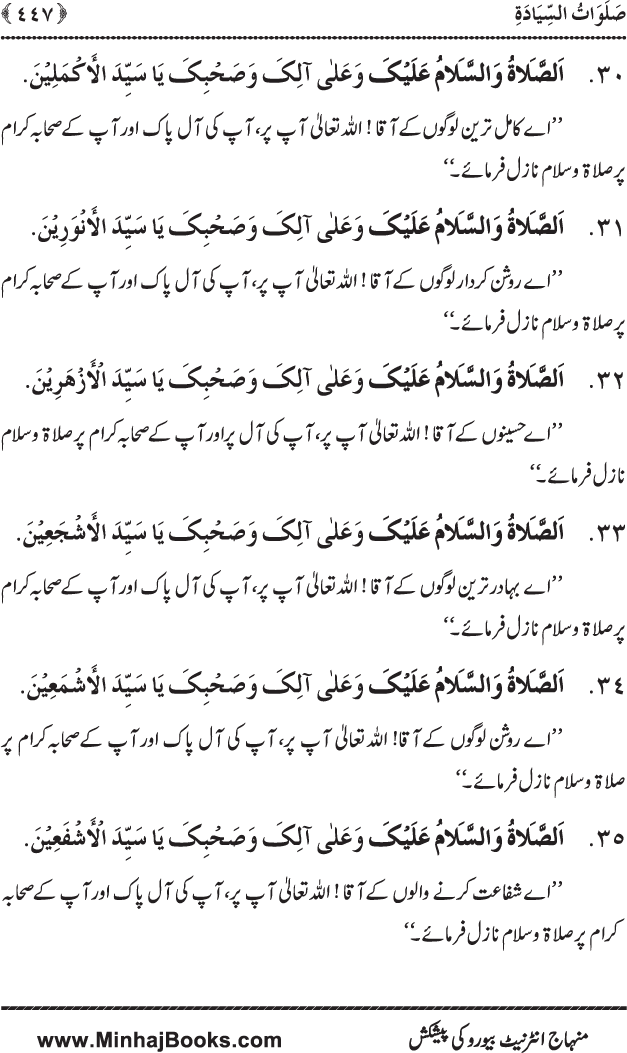 صَلَوَاتُ السِّيَادَةِ ﴿٤٤٧﴾
٣٠. اَلصَّلَاةُ وَالسَّلَامُ عَلَيْکَ وَعَلٰی آلِکَ وَصَحْبِکَ يَا سَيِّدَ الْأَکْمَلِيْنَ.
’’اے کامل ترین لوگوں کے آقا! اللہ تعالیٰ آپ پر، آپ کی آل پاک اور آپ کے صحابہ کرام
پر صلاۃ وسلام نازل فرمائے۔‘‘
٣١. اَلصَّلَاةُ وَالسَّلَامُ عَلَيْکَ وَعَلٰی آلِکَ وَصَحْبِکَ يَا سَيِّدَ الْأَنْوَرِيْنَ.
’’اے روشن کردار لوگوں کے آقا! اللہ تعالیٰ آپ پر، آپ کی آل پاک اور آپ کے صحابہ کرام
پر صلاۃ وسلام نازل فرمائے۔‘‘
٣٢. اَلصَّلَاةُ وَالسَّلَامُ عَلَيْکَ وَعَلٰی آلِکَ وَصَحْبِکَ يَا سَيِّدَ الْأَزْهَرِيْنَ.
’’اے حسینوں کے آقا! اللہ تعالیٰ آپ پر، آپ کی آل پر اور آپ کے صحابہ کرام پر صلاۃ وسلام
نازل فرمائے۔‘‘
٣٣. اَلصَّلَاةُ وَالسَّلَامُ عَلَيْکَ وَعَلٰی آلِکَ وَصَحْبِکَ يَا سَيِّدَ الْأَشْجَعِيْنَ.
’’اے بہادر ترین لوگوں کے آقا! اللہ تعالیٰ آپ پر، آپ کی آل پاک اور آپ کے صحابہ کرام
پر صلاۃ وسلام نازل فرمائے۔‘‘
٣٤. اَلصَّلَاةُ وَالسَّلَامُ عَلَيْکَ وَعَلٰی آلِکَ وَصَحْبِکَ يَا سَيِّدَ الْأَشْمَعِيْنَ.
’’اے روشن لوگوں کے آقا! اللہ تعالیٰ آپ پر، آپ کی آل پاک اور آپ کے صحابہ کرام پر
صلاۃ وسلام نازل فرمائے۔‘‘
٣٥. اَلصَّلَاةُ وَالسَّلَامُ عَلَيْکَ وَعَلٰی آلِکَ وَصَحْبِکَ يَا سَيِّدَ الْأَشْفَعِيْنَ.
’’اے شفاعت کرنے والوں کے آقا! اللہ تعالیٰ آپ پر، آپ کی آل پاک اور آپ کے صحابہ
کرام پر صلاۃ وسلام نازل فرمائے۔‘‘
منہاج انٹرنیٹ بیورو کی پیشکش www.MinhajBooks.com